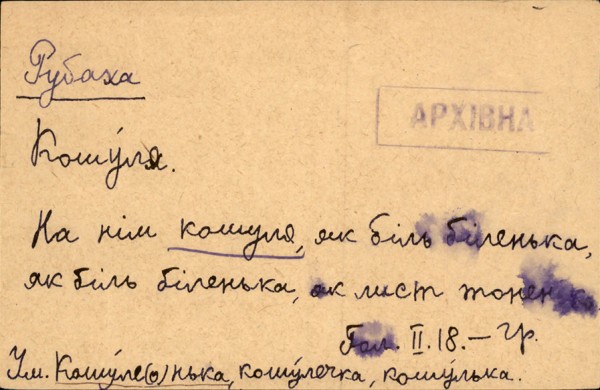 Рубаха
АРХІВНА
Кошу́ля.
На нім кошуля, як біль біленька,
як біль біленька, як лист тоненька
Гол. II. 18. — Гр.
Ум. Кошу́ле(о)нька, кошу́лечка, кошу́лька.